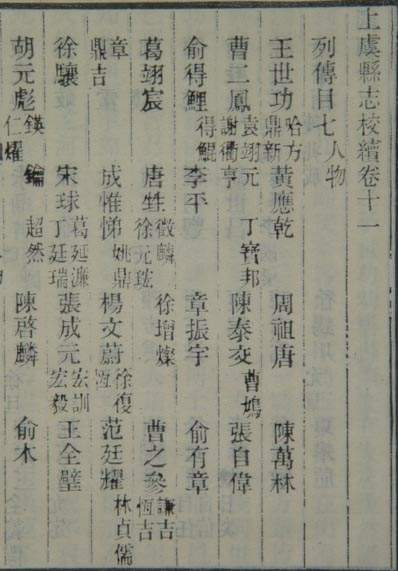 上虞縣志校續卷十一
列傳目七 人物
王世功 哈方 鼎新 黃應乾 周祖唐 陳萬林
曹二鳳 袁翊元 謝衢亨 丁寶邦 陳泰交 曹鳩 張自偉
俞得鯉 得鯤 李平 章振宇 俞有章
葛翊宸 唐甡 徵麟 徐元珫 徐增燦 曹之參 謙吉 恆吉
章鼎吉 成惟悌 姚鼎 楊文蔚 徐復恆 范廷耀 林貞儒
徐驤 宋球 葛延濂 丁廷瑞 張成元 宏訓 宏毅 王全璧
胡元彪 鍈 仁燿 超然 陳啓麟 俞木